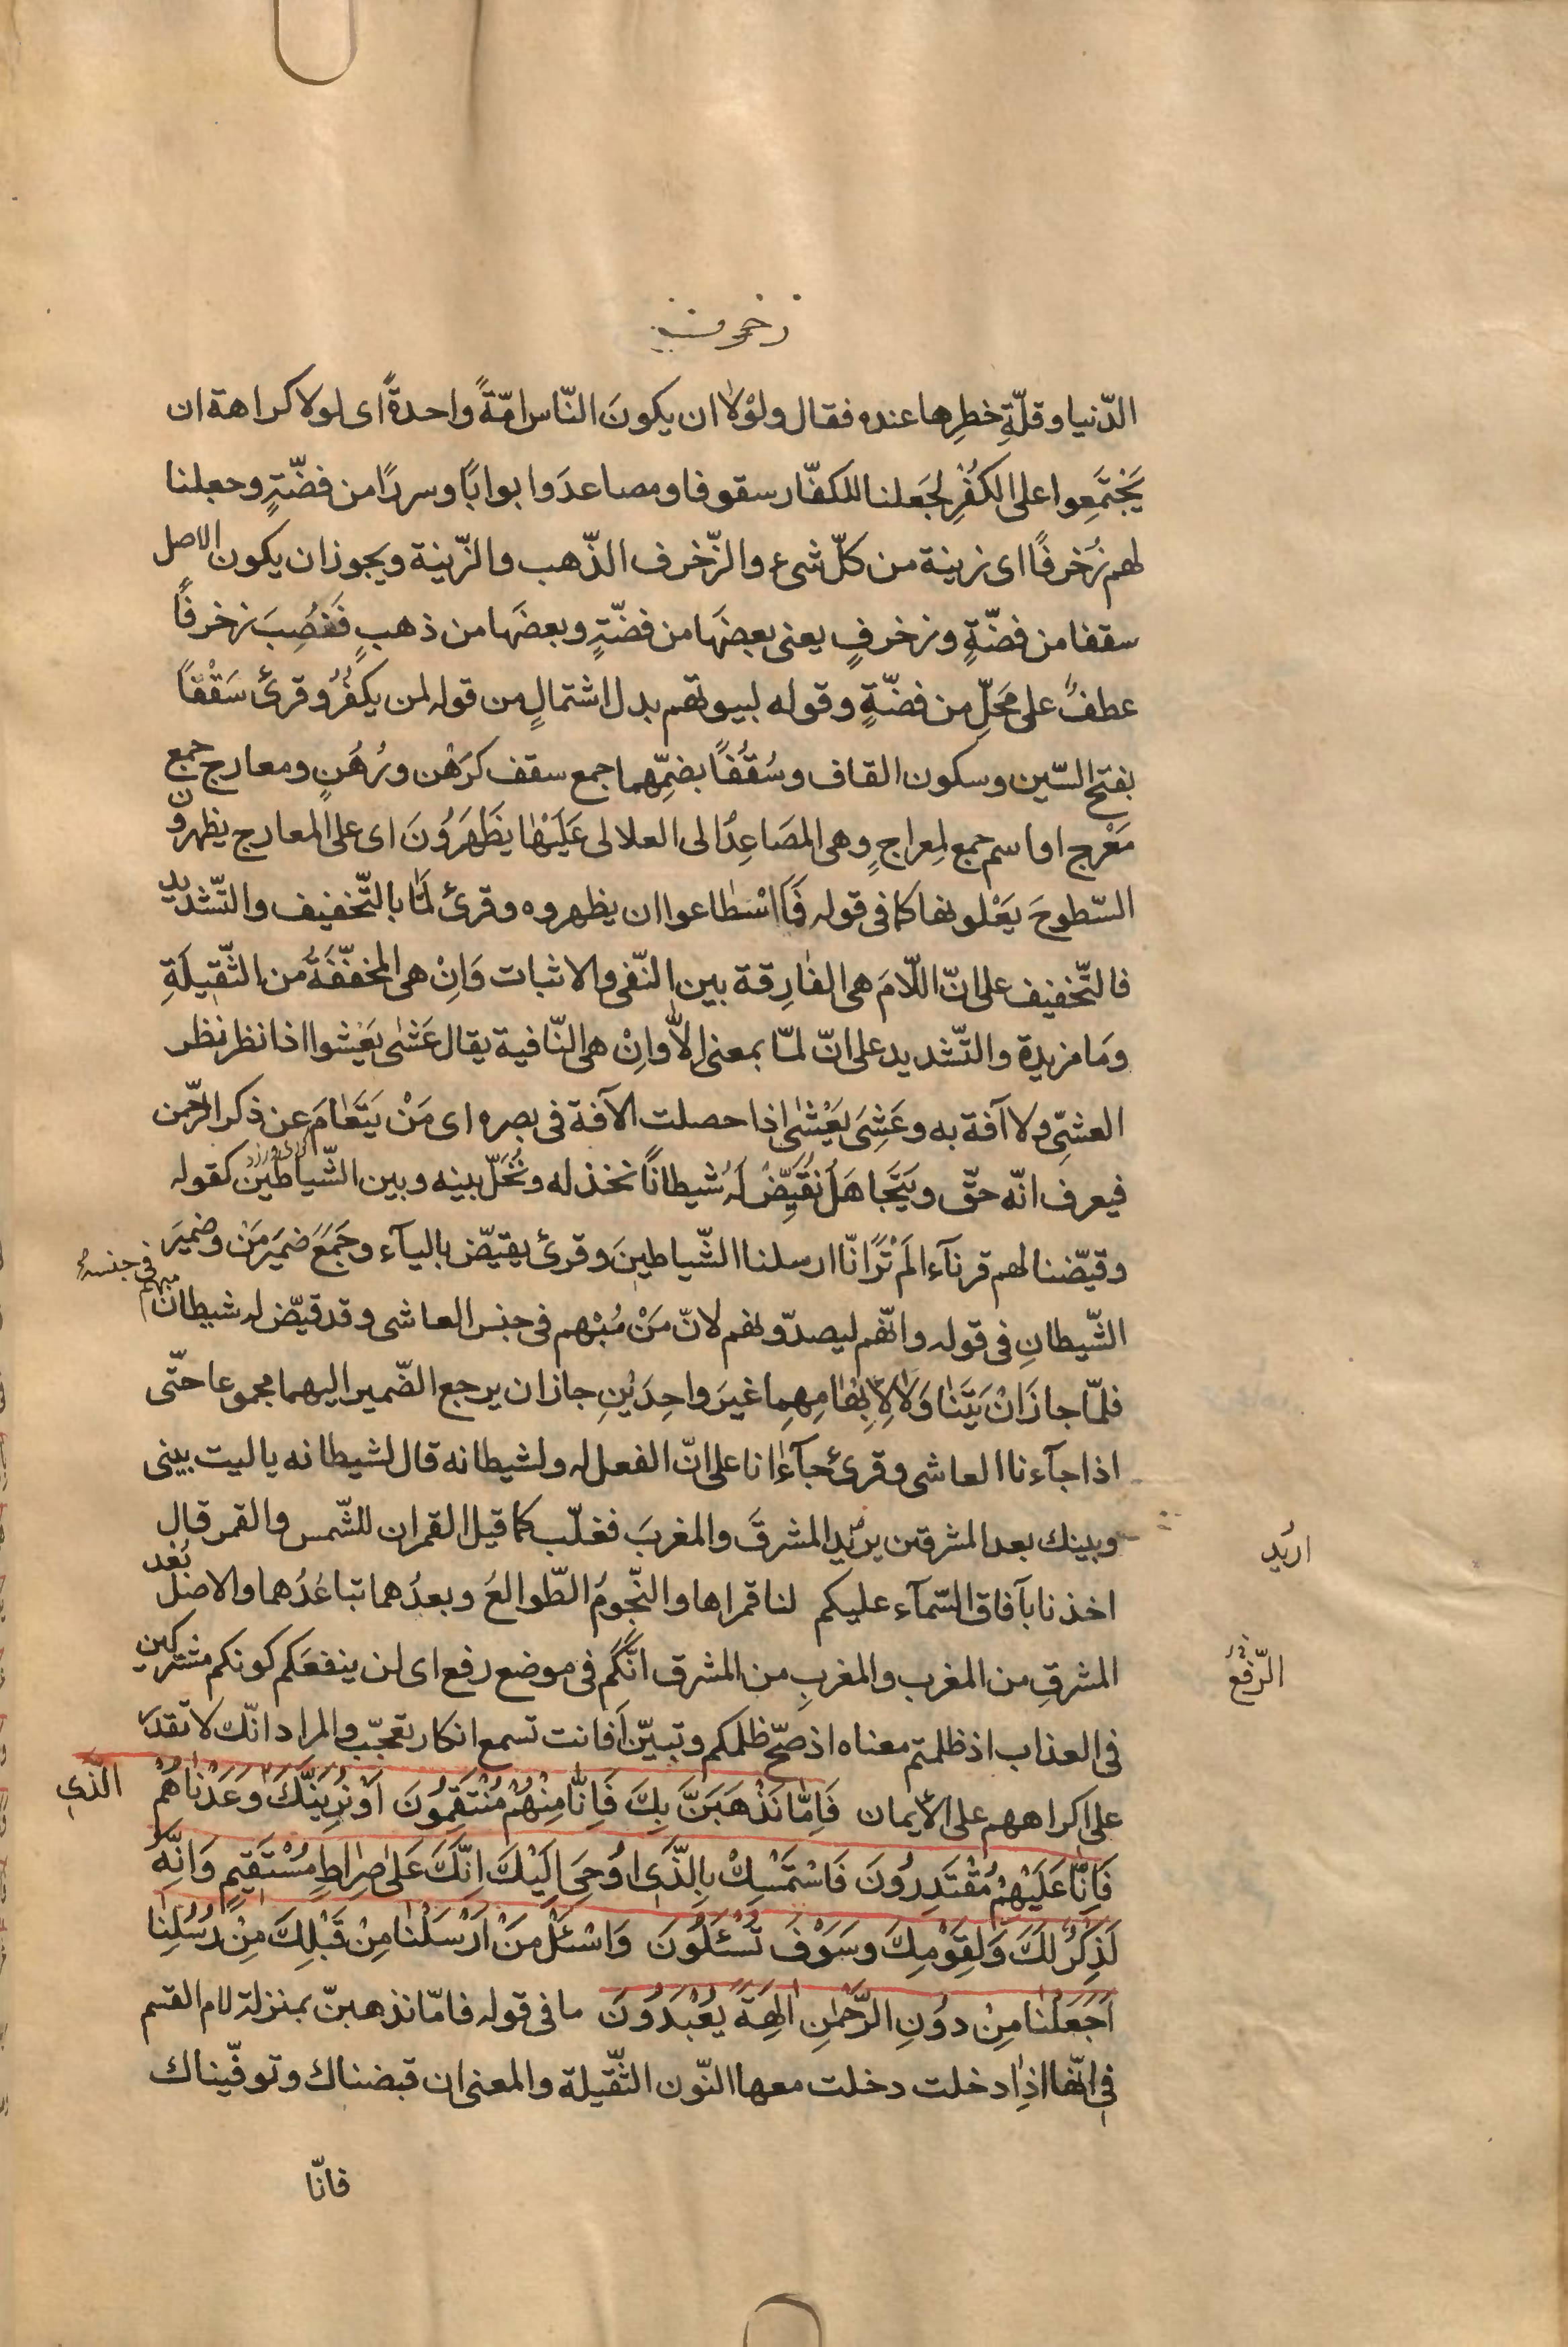 زخرف
الدّنيا وقلّةِ خطرِها عنده فقال ولوْلا ان يكونَ النّاس امّةً واحدةً اى لولا كراهة ان
يَجْتَمِعوا على الكفْرِ لجَعلنا للكفّار سقوفا ومصاعدَ وابوابًا وسررًا من فضّةٍ وجعلنا
لهم زُخرفًا اى زينة من كلّ شىء والزّخرف الذّهب والزّينة ويجوز ان يكون الاصل
سقفا من فضّةٍ وزخرفٍ يعنى بعضَها من فضّةٍ وبعضَها من ذهبٍ فَنُصِبَ زخرفًا
عطفٌ على مَحَلِّ من فضّةٍ وقوله لبيوتهم بدل اشتمالٍ من قوله لمن يكفُرُ وقرئ سَقْفًا
بفتح السّين وسكون القاف وسُقُفًا بضمّهما جمع سقف كرَهْن ورُهُنٍ ومعارج جمع
مَعْرج او اسم جمع لمِعراجٍ وهى المصَاعِدُ الى العلالى عَلَيْهٰا يَظْهَرُونَ اى على المعارج يظهرون
السّطوحَ يَعْلونها كما فى قوله فَمَا اسْطاعوا ان يظهروه وقرئ لمّا بالتّخفيف والتّشديد
فالتّخفيف على انّ اللّامَ هى الفٰارِقة بين النّفى والاثبات وَاِنْ هى المخفّفَةُ من الثّقيلَةِ
ومَا مزيدة والتّشديد على انّ لمّا بمعنى اِلاّ وانْ هى النّافية يقال عَشٰى يَعْشوا اذا نظر نظر
العشىّ ولا آفة به وعَشِىَ يَعْشٰى اذا حصلت الآفة فى بصره اى مَنْ يَتَعٰامَ عن ذكر الرّحمن
فيعرف انّه حقّ ويَتَجاهَلُ نُقَيِّضْ لَهُ شيطانًا نخذله ونُخَلّ بينه وبين الشّياطين كقوله
وقيّضنا لهم قرنآء المْ تَرَ انّا ارسلنا الشّياطينَ وقرئ يقيّض باليآء وجَمَعَ ضميَر مَنْ وضميَر
الشّيطانِ فى قوله وانّهم ليصدّونهم لانّ مَنْ مُبْهم فى جنس العاشى وقد قيّض له شيطان مبهم فى جنسهِ
فلمّا جازَ اَنْ يَتَنٰاوَلاٰ لاِبْهٰامِهِما غيَر واحِدَيْنِ جاز ان يرجع الضّمير اليهما مجموعا حتّى
اذا جآءنا العاشى وقرئ جآءٰانا على انّ الفعل له ولشيطانه قال لشيطانه يا ليت بينى
وبينك بعد المشرقين يريد المشرقَ والمغربَ فغلّب كما قيل القمران للشّمس والقمر قال
اريد
اخذنا بآفاق السّمآء عليكم لنا قمراها والنّجومُ الطّوالعُ وبعدُهما تباعُدُهما والاصل بُعْد
المشرقِ من المغرب والمغربِ من المشرق انّكُم فى موضع رفع اى لن ينفعَكم كونكم مشتركين
الرّفع
فى العذاب اذ ظلمتم معناه اذ صحّ ظلمكم وتبيّن اَفانت تسمع انكار تعجّب والمراد انّك لا تقدر
على اكراههم على الايمان فَاِمّٰا نَذْهَبَنَّ بِكَ فَاِنّٰا مِنْهُمْ مُنْتَقِمُونَ اَوْ نُرِيَنَّكَ وَعَدْنٰاهُمْ
الذى
فَاِنّٰا عَلَيْهِمْ مُقْتَدِرُونَ فَاسْتَمْسِكْ بِالَّذٰى اُوحِىَ اِلَيْكَ اِنَّكَ عَلٰى صِرٰاطٍ مُسْتَقِيمٍ وَاِنَّهُ
لَذِكْرٌ لَكَ وَلِقَوْمِكَ وَسَوْفَ تُسْئَلُونَ وَاسْئَلْ مَنْ اَرْسَلْنٰا مِنْ قَبْلِكَ مِنْ رُسُلِنٰا
اَجَعَلْنٰا مِنْ دُونِ الرَّحْمٰنِ اٰلِهَةً يُعْبَدُونَ ما فى قوله فامّا نذهبنّ بمنزلة لام القسم
فى انّها اذا دخلت دخلت معها النّون الثّقيلة والمعنى ان قبضناك وتوفّيناك
فانّا